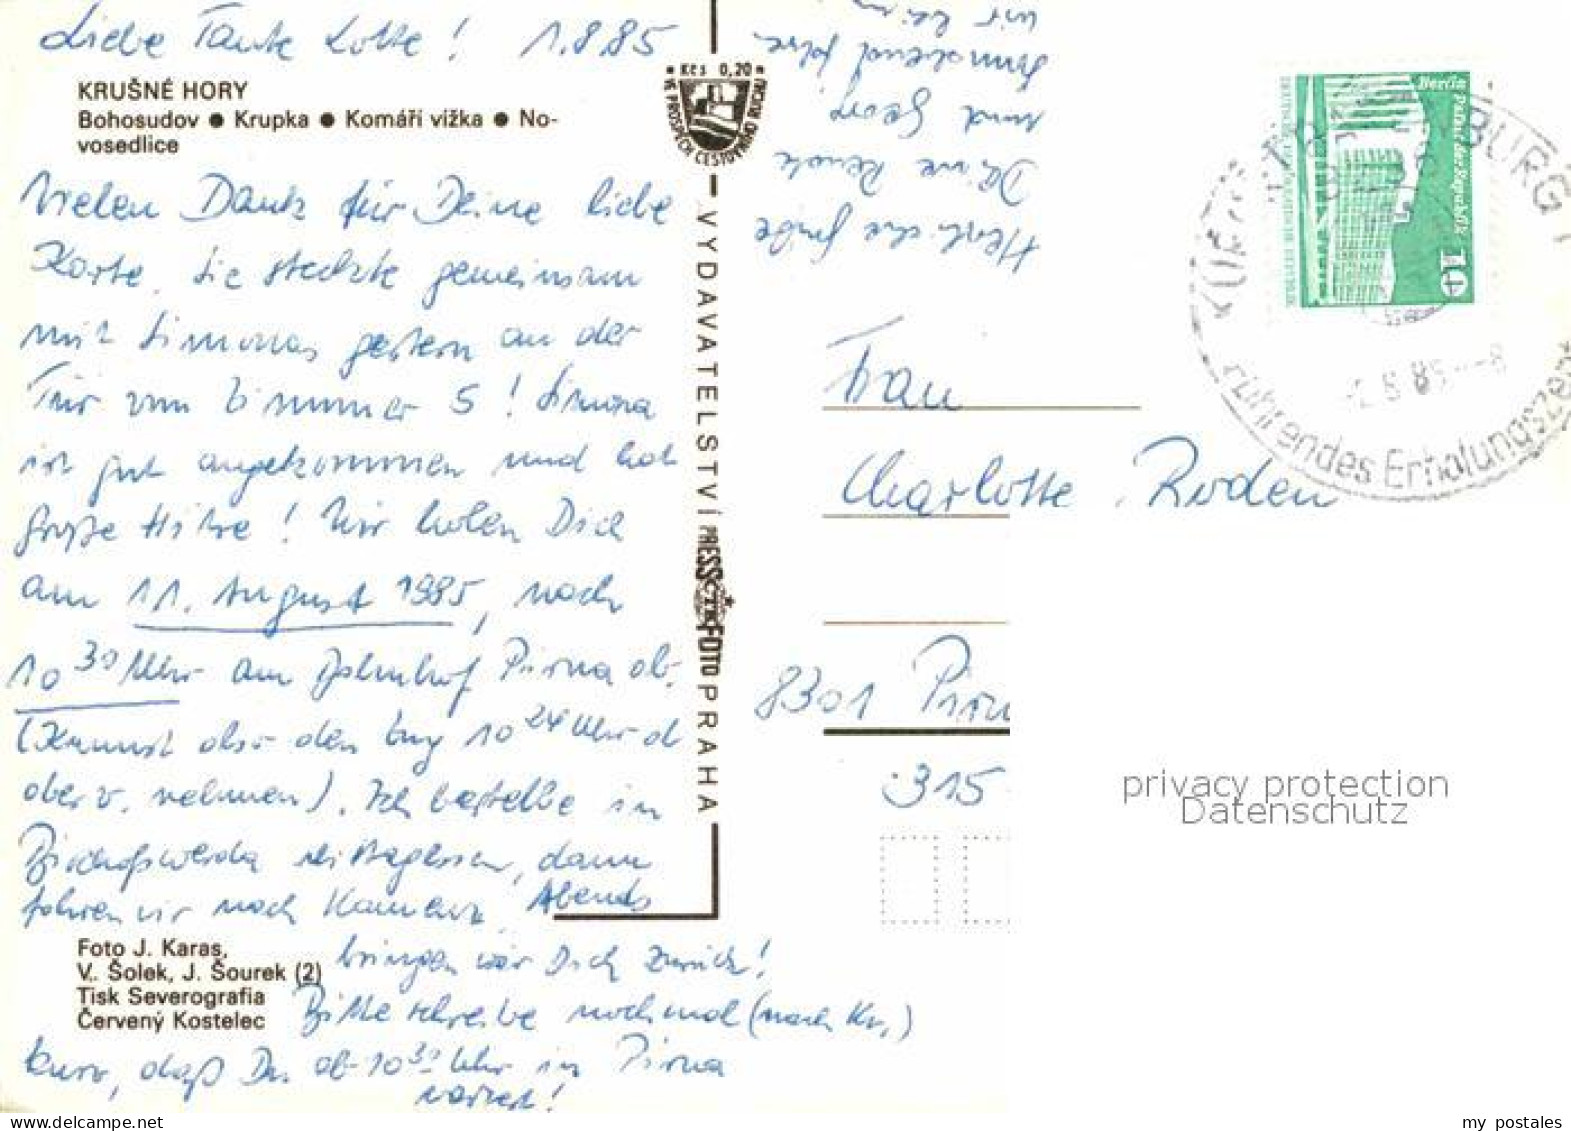 Liebe Tante Lotte! 1.8.85
KRUŠNÉ HORY
Bohosudov ● Krupka ● Komáří vížka ● No-
vosedlice
Vielen Dank für Deine liebe
Karte. Sie steckte gemeinsam
mit Simonas gestern an der
Tür vom Zimmer 5! Simona
ist gut angekommen und hat
große Hitze! Wir holen Dich
am 11. August 1985, nach
10 30 Uhr am Bahnhof Pirna ab.
(Kannst also den Zug 10 24 Uhr ab
ober v. nehmen). Ich bestelle in
Bischofswerda Mittagessen, dann
fahren wir nach Kamenz. Abends
bringen wir Dich zurück!
Bitte schreibe nochmal (nach Ku.)
kurz, daß Du ab 10 30 Uhr in Pirna
wartest!
Foto J. Karas,
V. Šolek, J. Šourek (2)
Tisk Severografia
Červený Kostelec
Kčs 0,20
VE PROSPĚCH CESTOVNÍHO RUCHU
VYDAVATELSTVÍ PRESSFOTO PRAHA
Herzliche Grüße
Deine Renate
und Georg
Sonnabend fahren
wir
Berlin Palast der Republik
10
BURG 1
führendes Erholungszen
85 -8
Frau
Charlotte Roden
8301 Pirn
315
privacy protection
Datenschutz
my postales